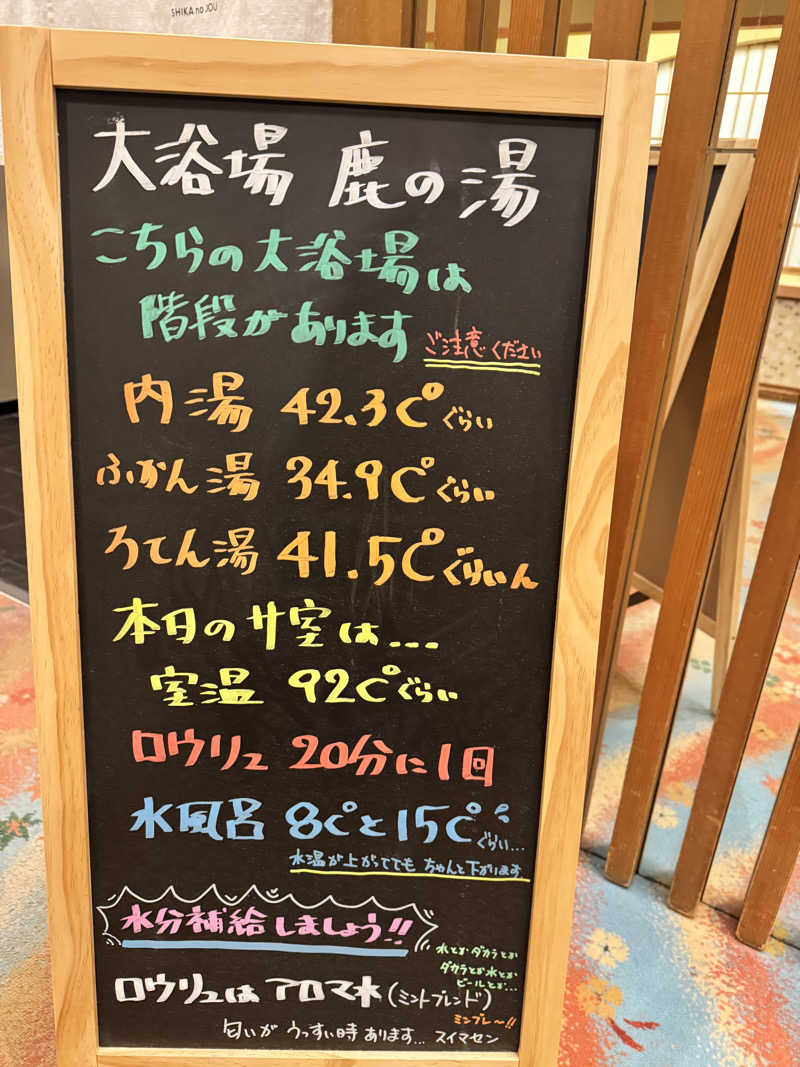 SHIKA no JOU
大浴場 鹿の湯
こちらの大浴場は
階段があります ご注意ください
内湯 42.3C°ぐらい
ふかん湯 34.9C°ぐらい
ろてん湯 41.5C°ぐらいん
本日のサ室は...
室温 92C°ぐらい
ロウリュ 20分に1回
水風呂 8C°と15C°ぐらい...
水温が上がってても ちゃんと下がります
水分補給しましょう!!
水とかダカラとか
ダカラとか水とか
ビールとか...
ロウリュは アロマ水(ミントブレンド)
ミンブレ〜!!
匂いが うっすい時 あります... スイマセン